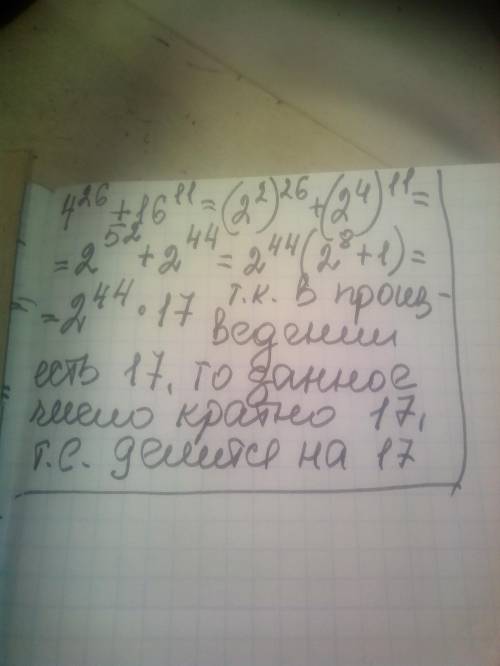 4²⁶ + 16¹¹ = (2²)²⁶ + (2⁴)¹¹ =
= 2⁵² + 2⁴⁴ = 2⁴⁴(2⁸ + 1) =
= 2⁴⁴ · 17 т.к. в произ-
ведении
есть 17, то данное
число кратно 17,
т.е. делится на 17